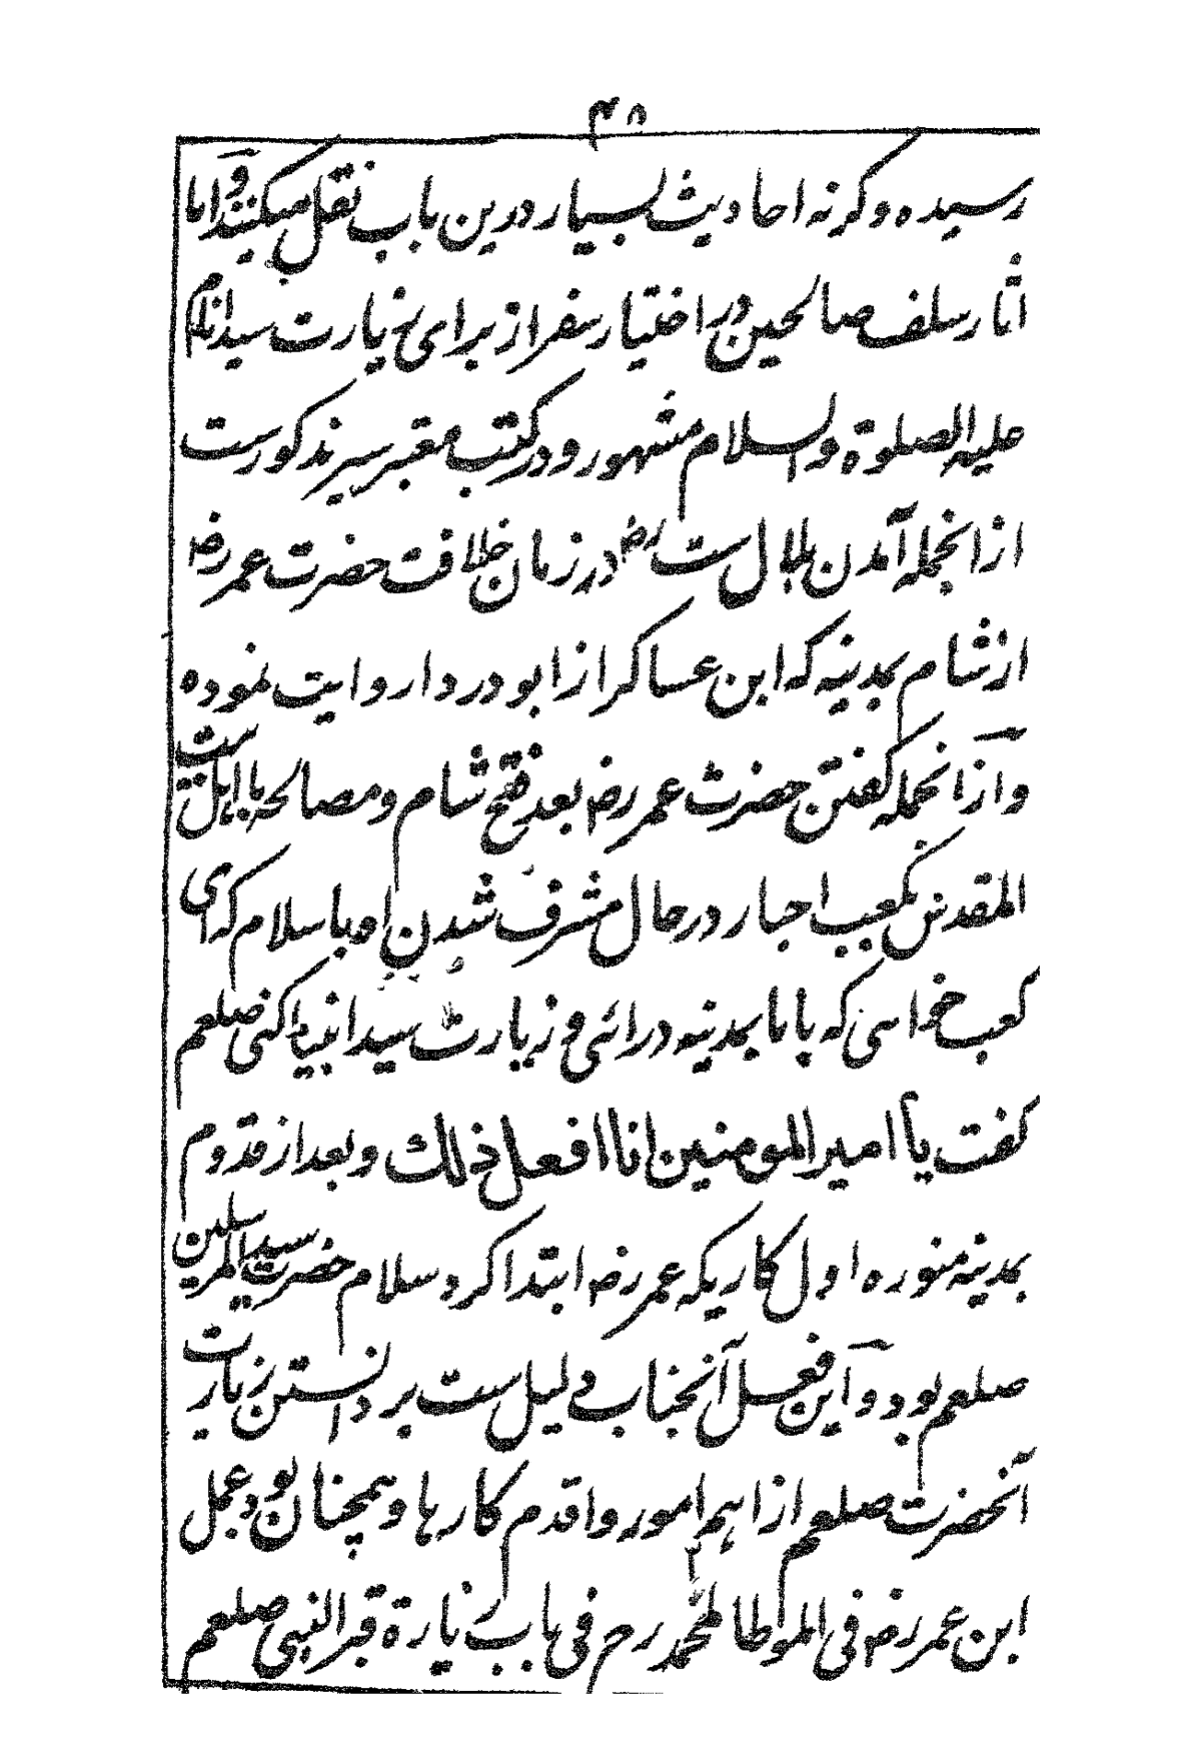 ۳۸
رسیده وگرنه احادیث بسیار درین باب نقل میکنند و اما
اثار سلف صالحین در اختیار سفر از برای زیارت سید انام
علیه الصلوة والسلام مشهور و در کتب معتبر سیر مذکورست
از انجمله آمدن بلال ست رض در زمان خلافت حضرت عمر رض
از شام بمدینه که ابن عساکر از ابو دردا روایت نموده
و از انجمله گفتن حضرت عمر رض بعد فتح شام و مصالحه با اهل بیت
المقدس بکعب احبار در حال مشرف شدن او باسلام که ای
کعب خواهی که باما بمدینه درائی و زیارت سید انبیا کنی صلعم
گفت یا امیر المومنین انا افعل ذلك و بعد از قدوم
بمدینه منوره اول کاریکه عمر رض ابتدا کرد سلام حضرت سید المرسلین
صلعم بود و این فعل آنجناب دلیل ست بر دانستن زیارت
آنحضرت صلعم از اهم امور و اقدم کارها و همچنان بود عمل
ابن عمر رض فی الموطا لمحمد رح فی باب زیارة قبر النبی صلعم